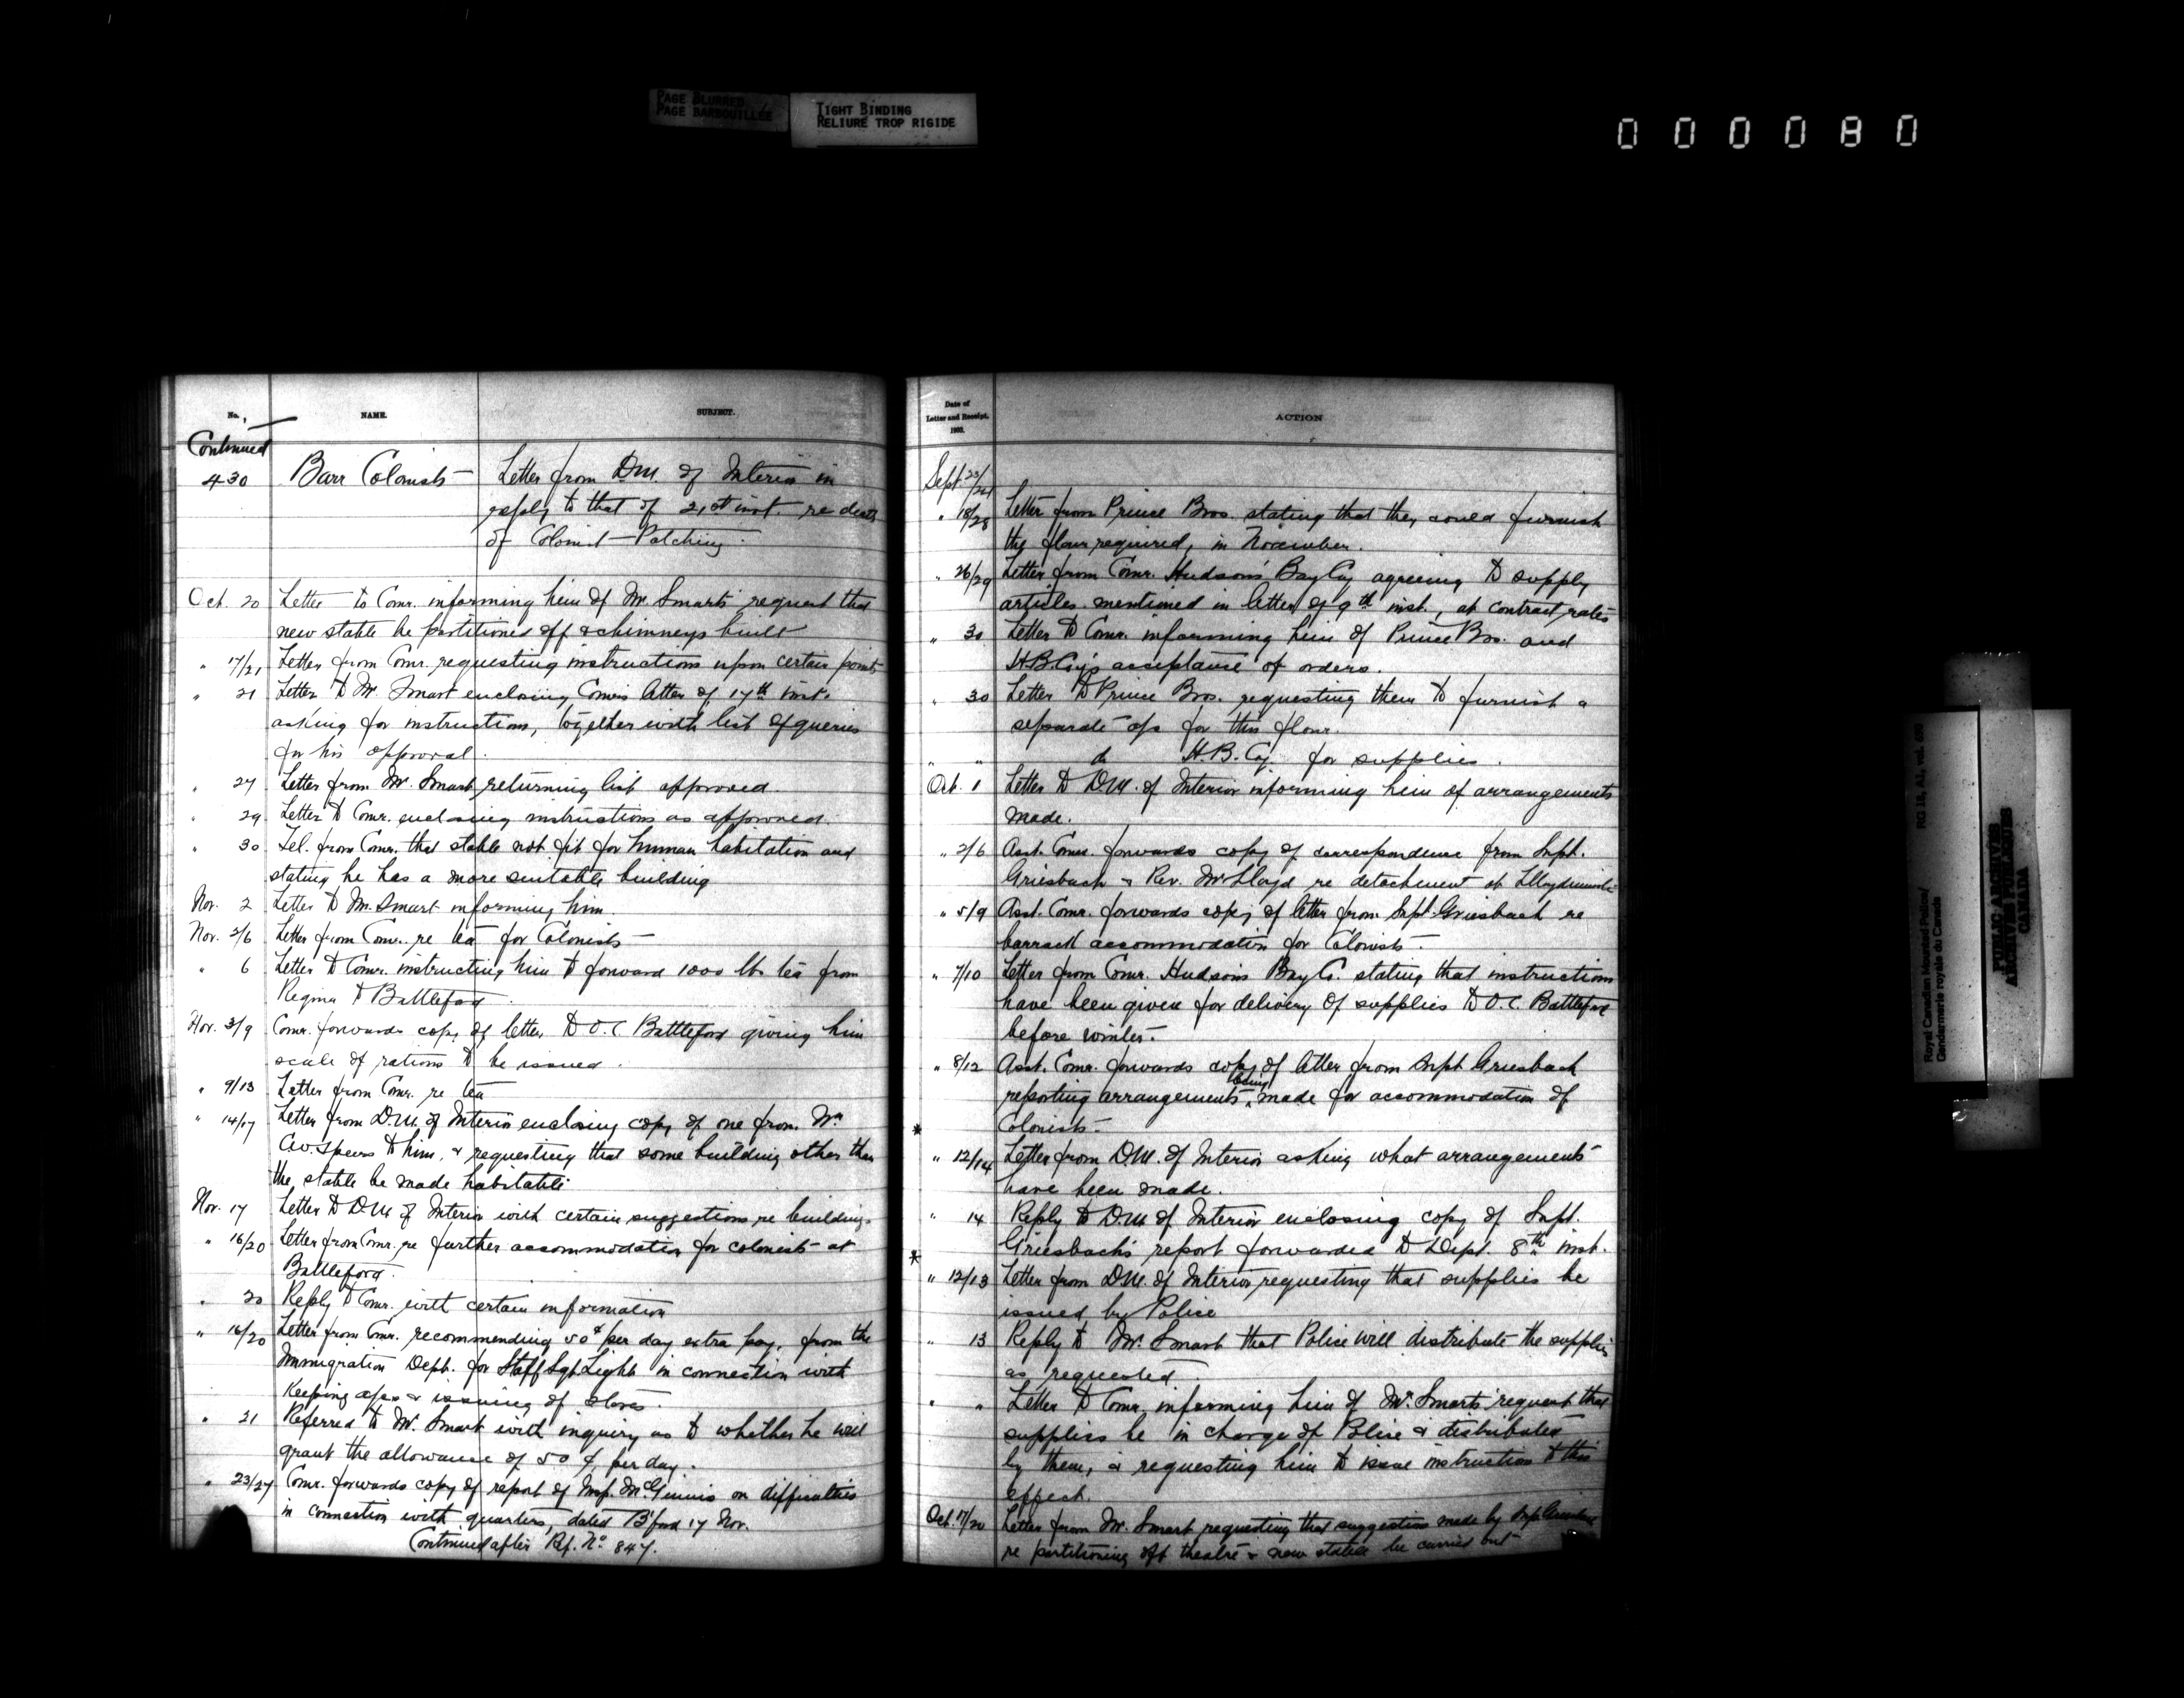 PAGE BLURRED
PAGE BARBOUILLÉE
TIGHT BINDING
RELIURE TROP RIGIDE
000080
No.
NAME.
SUBJECT.
Continued
430 Barr Colonists - Letter from D.M. of Interior in
reply to that of 21st inst. re death
of Colonist - Patching.
Oct. 20 Letter to Comr. informing him of Mr. Smart's request that
new stable be partitioned off & chimneys built
" 17/21 Letter from Comr. requesting instructions upon certain points
" 21 Letter to Mr. Smart enclosing Comr's letter of 17th inst.
asking for instructions, together with list of queries
for his approval.
" 27 Letter from Mr. Smart returning list approved.
" 29 Letter to Comr. enclosing instructions as approved.
" 30 Tel. from Comr. that stable not fit for human habitation and
stating he has a more suitable building
Nov. 2 Letter to Mr. Smart informing him.
Nov. 2/6 Letter from Comr. re tea for Colonists -
" 6 Letter to Comr. instructing him to forward 1000 lbs tea from
Regina to Battleford.
Nov. 3/9 Comr. forwards copy of letter to O.C. Battleford giving him
scale of rations to be issued.
" 9/13 Letter from Comr. re tea
" 14/17 Letter from D.M. of Interior enclosing copy of one from Mr
C.W. Speers to him, & requesting that some building other than
the stable be made habitable
Nov. 17 Letter to D.M. of Interior with certain suggestions re buildings
" 16/20 Letter from Comr. re further accommodation for colonists at
Battleford.
" 20 Reply to Comr. with certain information
" 16/20 Letter from Comr. recommending 50¢ per day extra pay, from the
Immigration Dept. for Staff Sgt. Light in connection with
keeping a/cs & issuing of stores.
" 21 Referred to Mr. Smart with inquiry as to whether he will
grant the allowance of 50 ¢ per day.
" 23/27 Comr. forwards copy of report of Insp. McGinnis on difficulties
in connection with quarters, dated B'ford 17 Nov.
Continued after Ref. No 847.
Date of
Letter and Receipt.
1903.
ACTION
Sept. 23/24
" 18/28 Letter from Prince Bros. stating that they could furnish
the flour required, in November.
" 26/29 Letter from Comr. Hudson's Bay Coy agreeing to supply
articles mentioned in letter of 9th inst., at contract rates
" 30 Letter to Comr. informing him of Prince Bros. and
H.B. Coy's acceptance of orders.
" 30 Letter to Prince Bros. requesting them to furnish a
separate a/c for this flour.
" " do H.B. Coy for supplies.
Oct. 1 Letter to D.M. of Interior informing him of arrangements
made.
" 2/6 Asst. Comr. forwards copy of correspondence from Supt.
Griesbach & Rev. Mr Lloyd re detachment at Lloydminster
" 5/9 Asst. Comr. forwards copy of letter from Supt. Griesbach re
barrack accommodation for Colonists -
" 7/10 Letter from Comr. Hudson's Bay Co. stating that instructions
have been given for delivery of supplies to O.C. Battleford
before winter.
" 8/12 Asst. Comr. forwards copy of letter from Supt Griesbach
reporting arrangements being made for accommodation of
Colonists -
*
" 12/14 Letter from D.M. of Interior asking what arrangements
have been made.
" 14 Reply to D.M. of Interior enclosing copy of Supt.
Griesbach's report forwarded to Dept. 8th inst.
*
" 12/13 Letter from D.M. of Interior requesting that supplies be
issued by Police
" 13 Reply to Mr. Smart that Police will distribute the supplies
as requested.
" " Letter to Comr. informing him of Mr. Smart's request that
supplies be in charge of Police & distributed
by them, & requesting him to issue instructions to this
effect.
Oct. 17/20 Letter from Mr. Smart requesting that suggestions made by Supt Griesbach
re partitioning off theatre & new stable be carried out
Royal Canadian Mounted Police/
Gendarmerie royale du Canada
RG 18, A1, vol.
PUBLIC ARCHIVES
ARCHIVES PUBLIQUES
CANADA